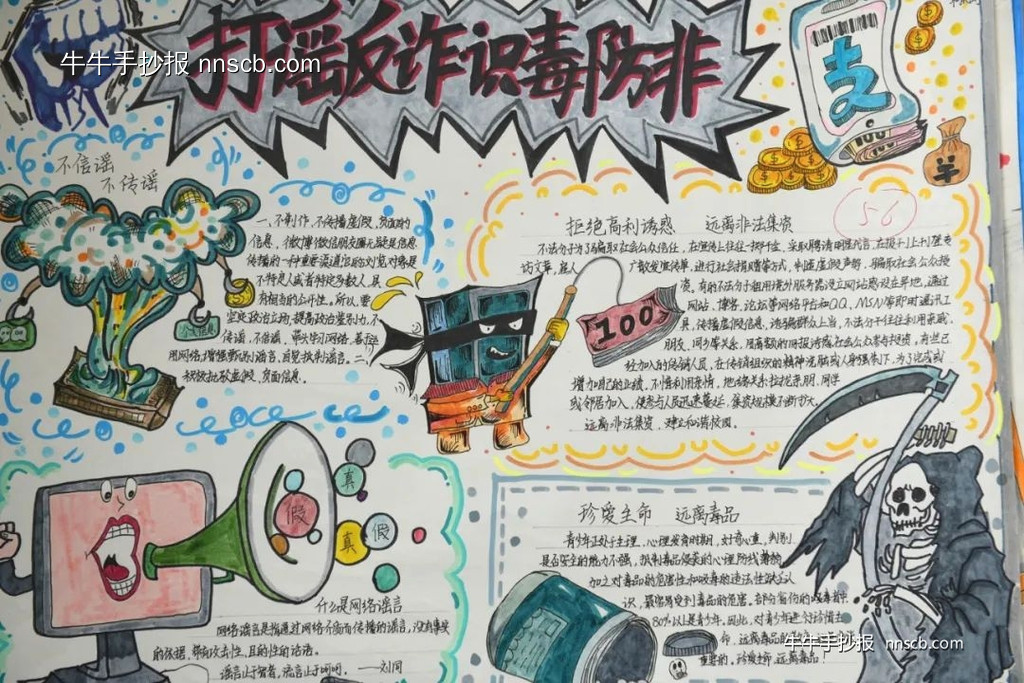 牛牛手抄报 nnscb.com
打谣反诈识毒防非
支
不信谣
不传谣
个人信息
一、不制作,不传播虚假,负面的
信息,微博微信朋友圈无疑是信息
传播的一种重要渠道
不特定人或者特定多数人,具
有相当的公开性。所以,要
坚定政治立场,提高政治鉴别力,不
传谣,不信谣,带头学习网络,
用网络,增强辨别谣言,自觉抵制谣言。二、
积极批驳虚假,负面信息。
拒绝高利诱惑 远离非法集资
56
不法分子为了骗取社会公众信任,在宣传上往往一掷千金,采取聘请明星代言,在报刊上刊登专
访文章,雇人广散发宣传单,进行社会捐赠等方式,制造虚假声势,骗取社会公众投
资。有的不法分子租用境外服务器设立网站或设在异地,通过
网站、博客、论坛等网络平台和QQ、MSN等即时通讯工
具,传播虚假信息,诱骗群众上当,不法分子往往利用亲戚,
朋友,同乡等关系,用高额的回报诱惑社会公众参与投资,有些已
经加入的传销人员,在传销组织的精神洗脑或人身强制下,为了完成或
增加自己的业绩,不惜利用亲情,地缘关系拉拢亲朋,同学
或邻居加入,使参与人员迅速蔓延,集资规模不断扩大。
远离非法集资,建立和谐校园。
100
真
假
真
假
什么是网络谣言
网络谣言是指通过网络介质而传播的谣言,没有事实
的依据,带有攻击性,且目的性的话语。
谣言止于智者,流言止于
珍爱生命 远离毒品
青少年正处于生理、心理发育时期,好奇心重,判别
是否安全的能力不强,抗制毒品侵袭的心理防线薄弱
加上对毒品的危害性和吸毒的违法性缺乏认
识,最容易受到毒品的危害。
80%以上是青少年。因此,对青少年进行珍惜生
命,远离毒品的
重要的,珍爱生命,远离毒品!
牛牛手抄报 nnscb.com